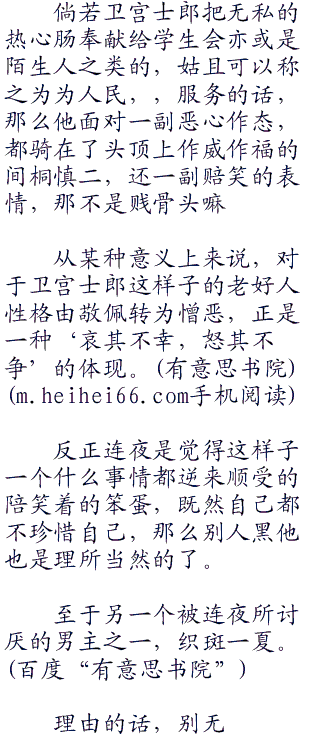 倘若卫宫士郎把无私的
热心肠奉献给学生会亦或是
陌生人之类的，姑且可以称
之为为人民，，服务的话，
那么他面对一副恶心作态，
都骑在了头顶上作威作福的
间桐慎二，还一副赔笑的表
情，那不是贱骨头嘛
从某种意义上来说，对
于卫宫士郎这样子的老好人
性格由敬佩转为憎恶，正是
一种‘哀其不幸，怒其不
争’的体现。(有意思书院)
(m.heihei66.com手机阅读)
反正连夜是觉得这样子
一个什么事情都逆来顺受的
陪笑着的笨蛋，既然自己都
不珍惜自己，那么别人黑他
也是理所当然的了。
至于另一个被连夜所讨
厌的男主之一，织斑一夏。
(百度“有意思书院”)
理由的话，别无